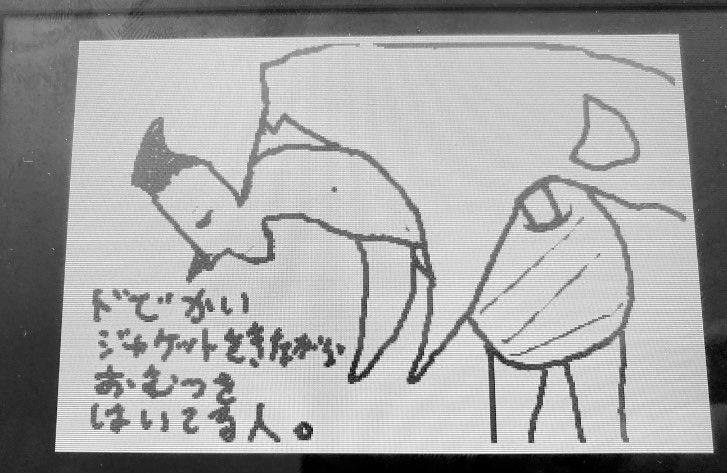 ドでかい
ジャケットをきながら
おむつを
はいてる人。